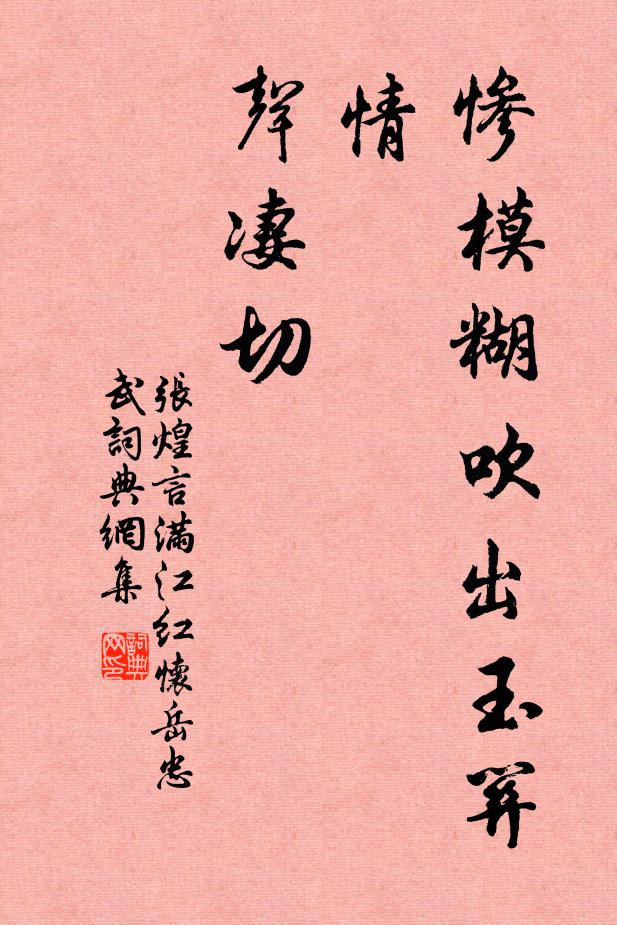 慘模糊吹出玉關
情
聲凄切
張煌言滿江紅懷岳忠
武詞典網集
詞典
网印